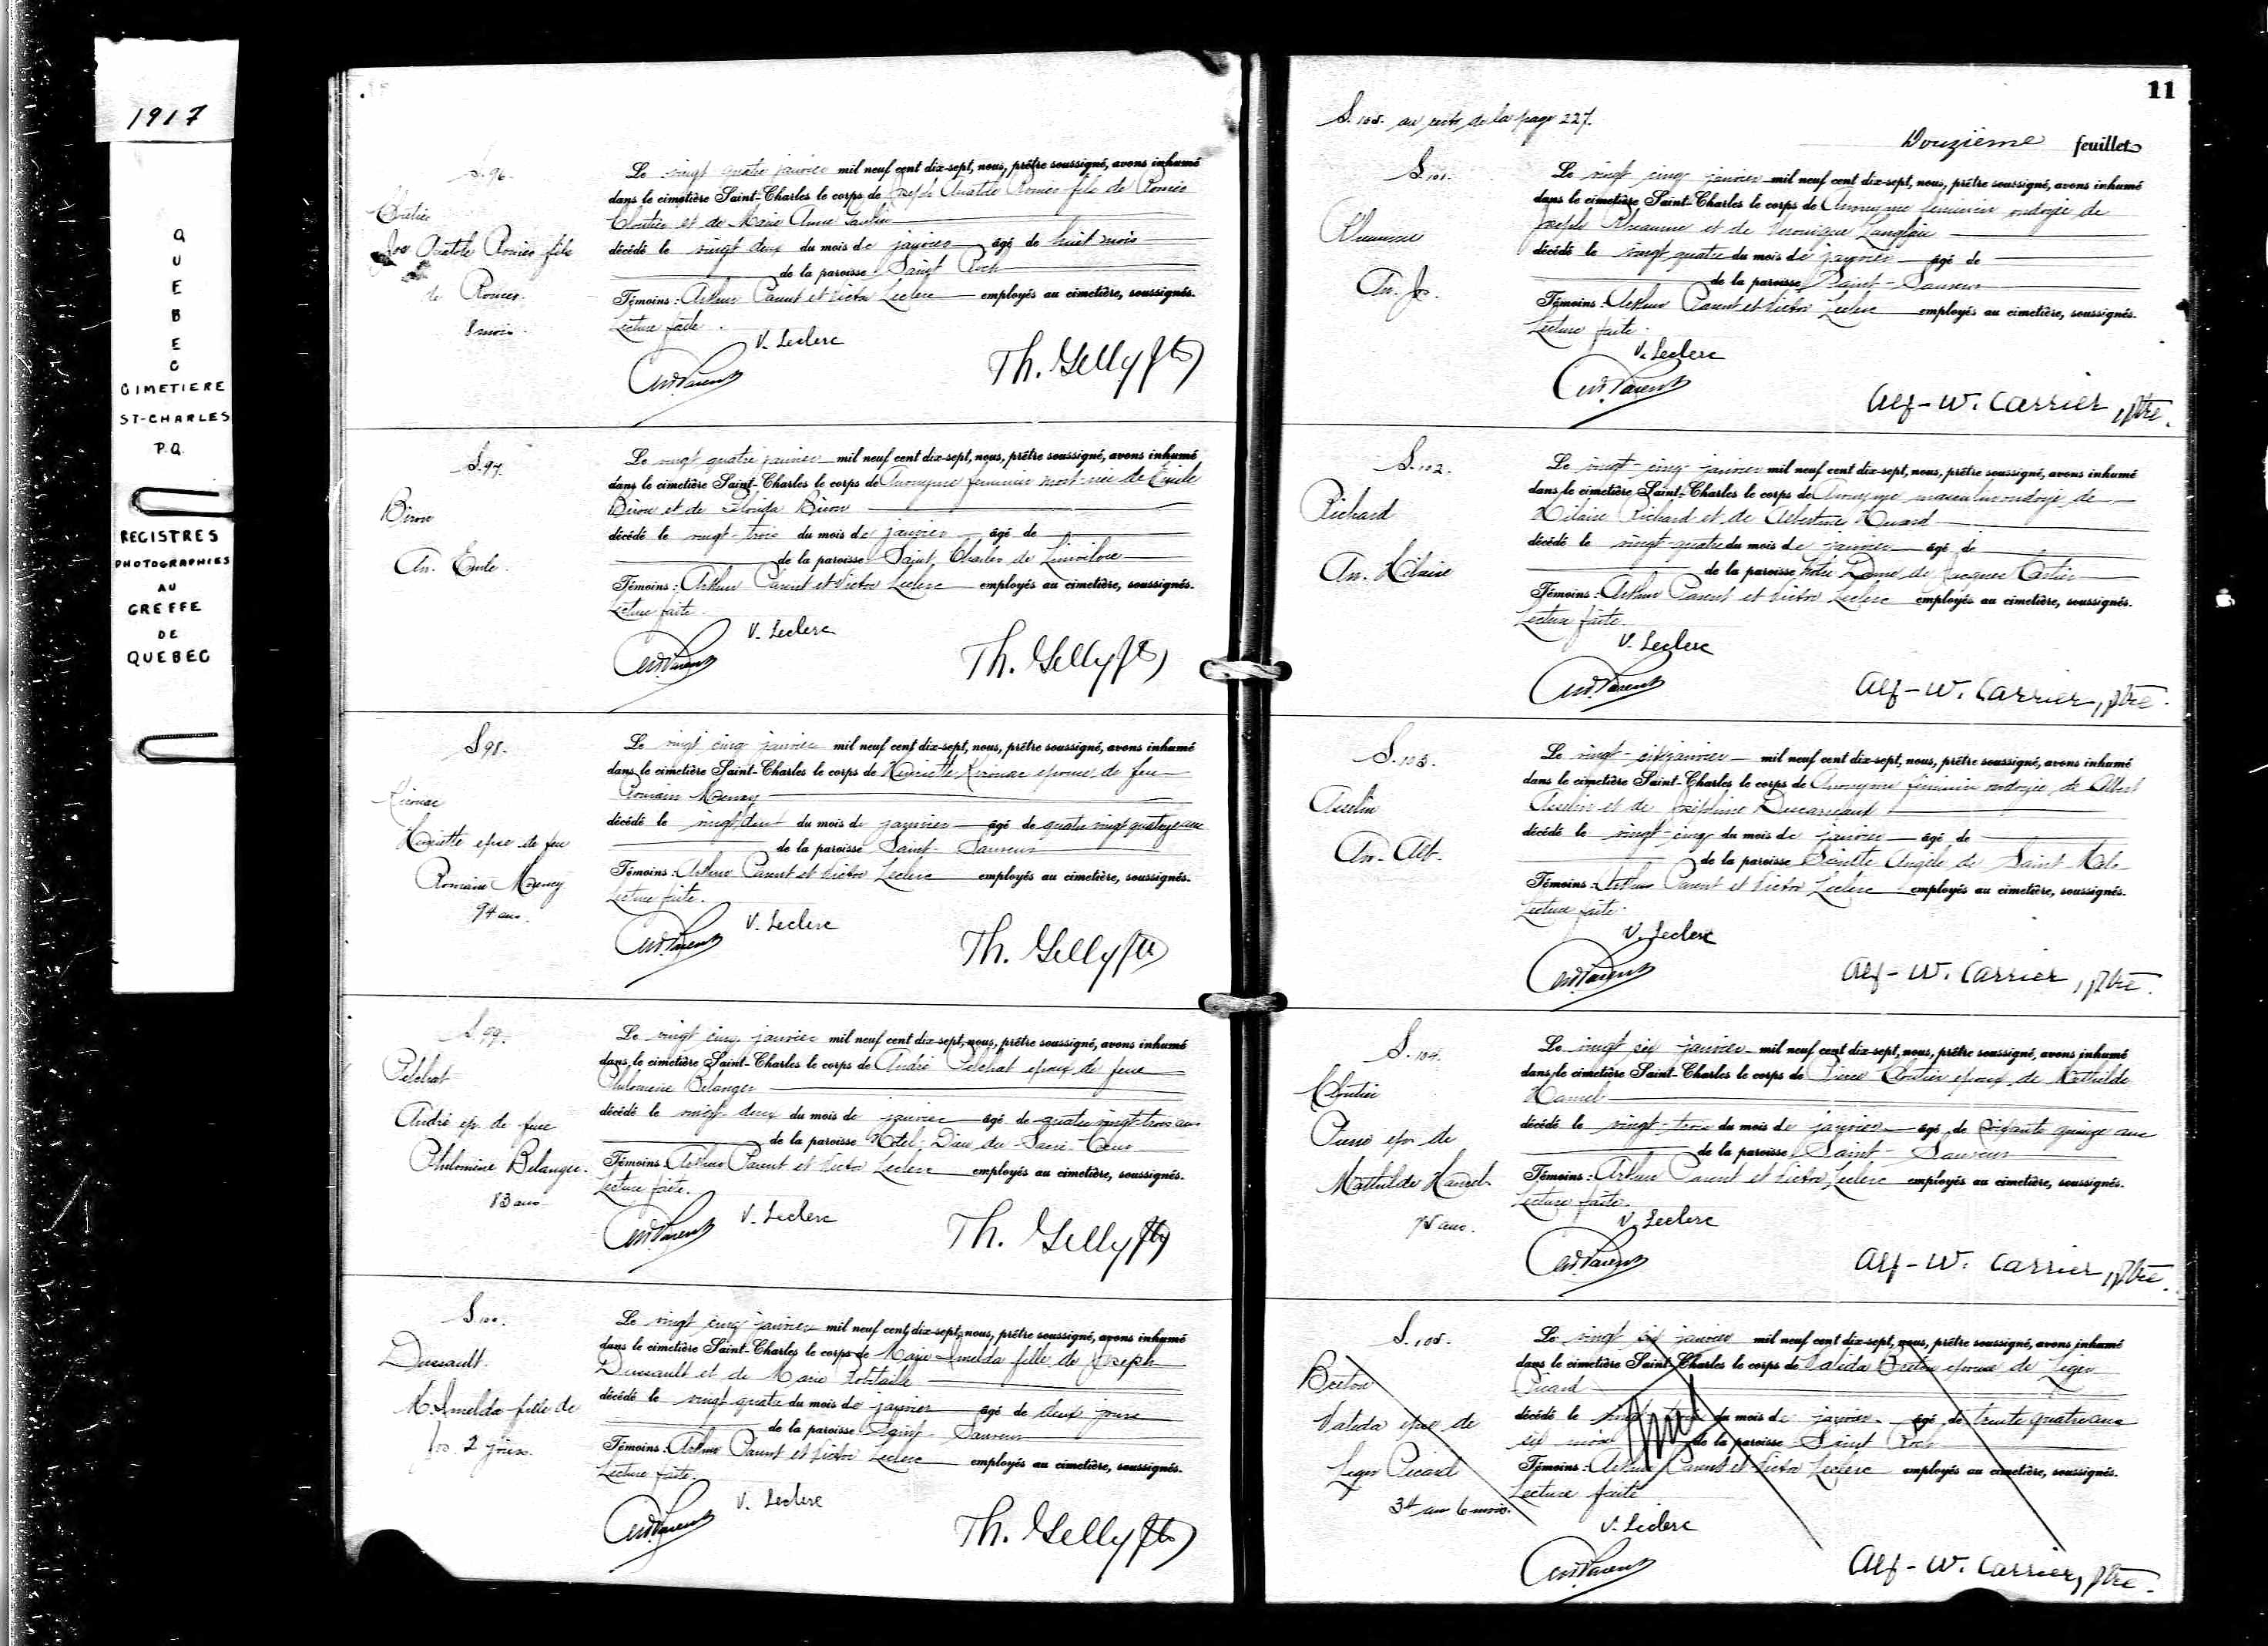 1917
QUEBEC
CIMETIERE
ST-CHARLES
P.Q.
REGISTRES
PHOTOGRAPHIES
AU
GREFFE
DE
QUEBEC
S. 96.
Cloutier
Jos Anatole Roméo fils
de Roméo.
8 mois.
Le vingt quatre janvier mil neuf cent dix-sept, nous, prêtre soussigné, avons inhumé
dans le cimetière Saint-Charles le corps de Joseph Anatole Roméo fils de Roméo
Cloutier et de Marie Anne
décédé le vingt deux du mois de janvier âgé de huit mois
de la paroisse Saint Roch
Témoins : Arthur Parent et Victor Leclerc employés au cimetière, soussignés.
Lecture faite.
V. Leclerc
Art. Parent
Th. Gelly ptre
S. 97.
Biron
An. Emile.
Le vingt quatre janvier mil neuf cent dix-sept, nous, prêtre soussigné, avons inhumé
dans le cimetière Saint-Charles le corps de Anonyme féminin mort-née de Emile
Biron et de Florida Biron
décédé le vingt-trois du mois de janvier âgé de
de la paroisse Saint Charles de Limoilou
Témoins : Arthur Parent et Victor Leclerc employés au cimetière, soussignés.
Lecture faite.
V. Leclerc
Art. Parent
Th. Gelly ptre
S. 98.
Kirouac
Henriette epse de feu
Romain Morency
94 ans.
Le vingt cinq janvier mil neuf cent dix-sept, nous, prêtre soussigné, avons inhumé
dans le cimetière Saint-Charles le corps de Henriette Kirouac epouse de feu
Romain Morency
décédé le vingt deux du mois de janvier âgé de quatre vingt quatorze ans
de la paroisse Saint-Sauveur
Témoins : Arthur Parent et Victor Leclerc employés au cimetière, soussignés.
Lecture faite.
V. Leclerc
Art. Parent
Th. Gelly ptre
S. 99.
Pelchat
André ep. de feue
Philomène Belanger.
83 ans
Le vingt cinq janvier mil neuf cent dix-sept, nous, prêtre soussigné, avons inhumé
dans le cimetière Saint-Charles le corps de André Pelchat epoux de feue
Philomène Belanger
décédé le vingt deux du mois de janvier âgé de quatre vingt-trois ans
de la paroisse Hotel-Dieu du Sacré-Coeur
Témoins : Arthur Parent et Victor Leclerc employés au cimetière, soussignés.
Lecture faite.
V. Leclerc
Art. Parent
Th. Gelly ptre
S. 100.
Dussault.
M. Imelda fille de
Jos. 2 jours.
Le vingt cinq janvier mil neuf cent dix-sept, nous, prêtre soussigné, avons inhumé
dans le cimetière Saint-Charles le corps de Marie Imelda fille de Joseph
Dussault et de Marie Robitaille
décédé le vingt quatre du mois de janvier âgé de deux jours
de la paroisse Saint-Sauveur
Témoins : Arthur Parent et Victor Leclerc employés au cimetière, soussignés.
Lecture faite.
V. Leclerc
Art. Parent
Th. Gelly ptre
11
S. 105. au recto de la page 227.
Douzième feuillet
S. 101.
Rheaume
An. Jos.
Le vingt cinq janvier mil neuf cent dix-sept, nous, prêtre soussigné, avons inhumé
dans le cimetière Saint-Charles le corps de Anonyme féminin ondoyé de
Joseph Rheaume et de Veronique Langlois
décédé le vingt quatre du mois de janvier âgé de
de la paroisse Saint-Sauveur
Témoins : Arthur Parent et Victor Leclerc employés au cimetière, soussignés.
Lecture faite.
V. Leclerc
Art. Parent
Alf-W. Carrier, ptre.
S. 102.
Richard
An. Hilaire
Le vingt-cinq janvier mil neuf cent dix-sept, nous, prêtre soussigné, avons inhumé
dans le cimetière Saint-Charles le corps de Anonyme masculin ondoyé de
Hilaire Richard et de Albertine Huard
décédé le vingt-quatre du mois de janvier âgé de
de la paroisse Notre Dame de Jacques Cartier
Témoins : Arthur Parent et Victor Leclerc employés au cimetière, soussignés.
Lecture faite.
V. Leclerc
Art. Parent
Alf-W. Carrier, ptre.
S. 103.
Asselin
An. Alb.
Le vingt-six janvier mil neuf cent dix-sept, nous, prêtre soussigné, avons inhumé
dans le cimetière Saint-Charles le corps de Anonyme féminin ondoyée de Albert
Asselin et de Joséphine
décédé le vingt-cinq du mois de janvier âgé de
de la paroisse Sainte Angèle de Saint Malo
Témoins : Arthur Parent et Victor Leclerc employés au cimetière, soussignés.
Lecture faite.
V. Leclerc
Art. Parent
Alf-W. Carrier, ptre.
S. 104.
Cloutier
Pierre epx de
Mathilde Hamel
75 ans.
Le vingt six janvier mil neuf cent dix-sept, nous, prêtre soussigné, avons inhumé
dans le cimetière Saint-Charles le corps de Pierre Cloutier epoux de Mathilde
Hamel
décédé le vingt-trois du mois de janvier âgé de soixante quinze ans
de la paroisse Saint-Sauveur
Témoins : Arthur Parent et Victor Leclerc employés au cimetière, soussignés.
Lecture faite.
V. Leclerc
Art. Parent
Alf-W. Carrier, ptre.
S. 105.
Breton
Valéda epse de
Leger Picard
34 ans 6 mois.
Le vingt six janvier mil neuf cent dix-sept, nous, prêtre soussigné, avons inhumé
dans le cimetière Saint-Charles le corps de Valéda Breton epouse de Leger
Picard
décédé le vingt du mois de janvier âgé de trente quatre ans
six mois de la paroisse Saint Roch
Témoins : Arthur Parent et Victor Leclerc employés au cimetière, soussignés.
Lecture faite
V. Leclerc
Art. Parent
Alf-W. Carrier, ptre.